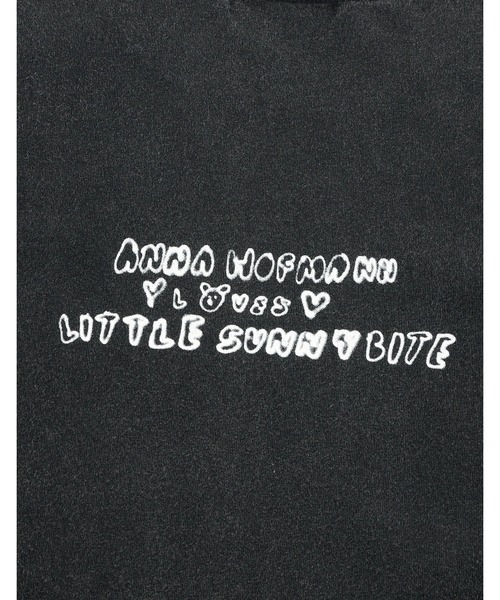 ANNA HOFMANN
♡ LOVES ♡
LITTLE SUNNY BITE